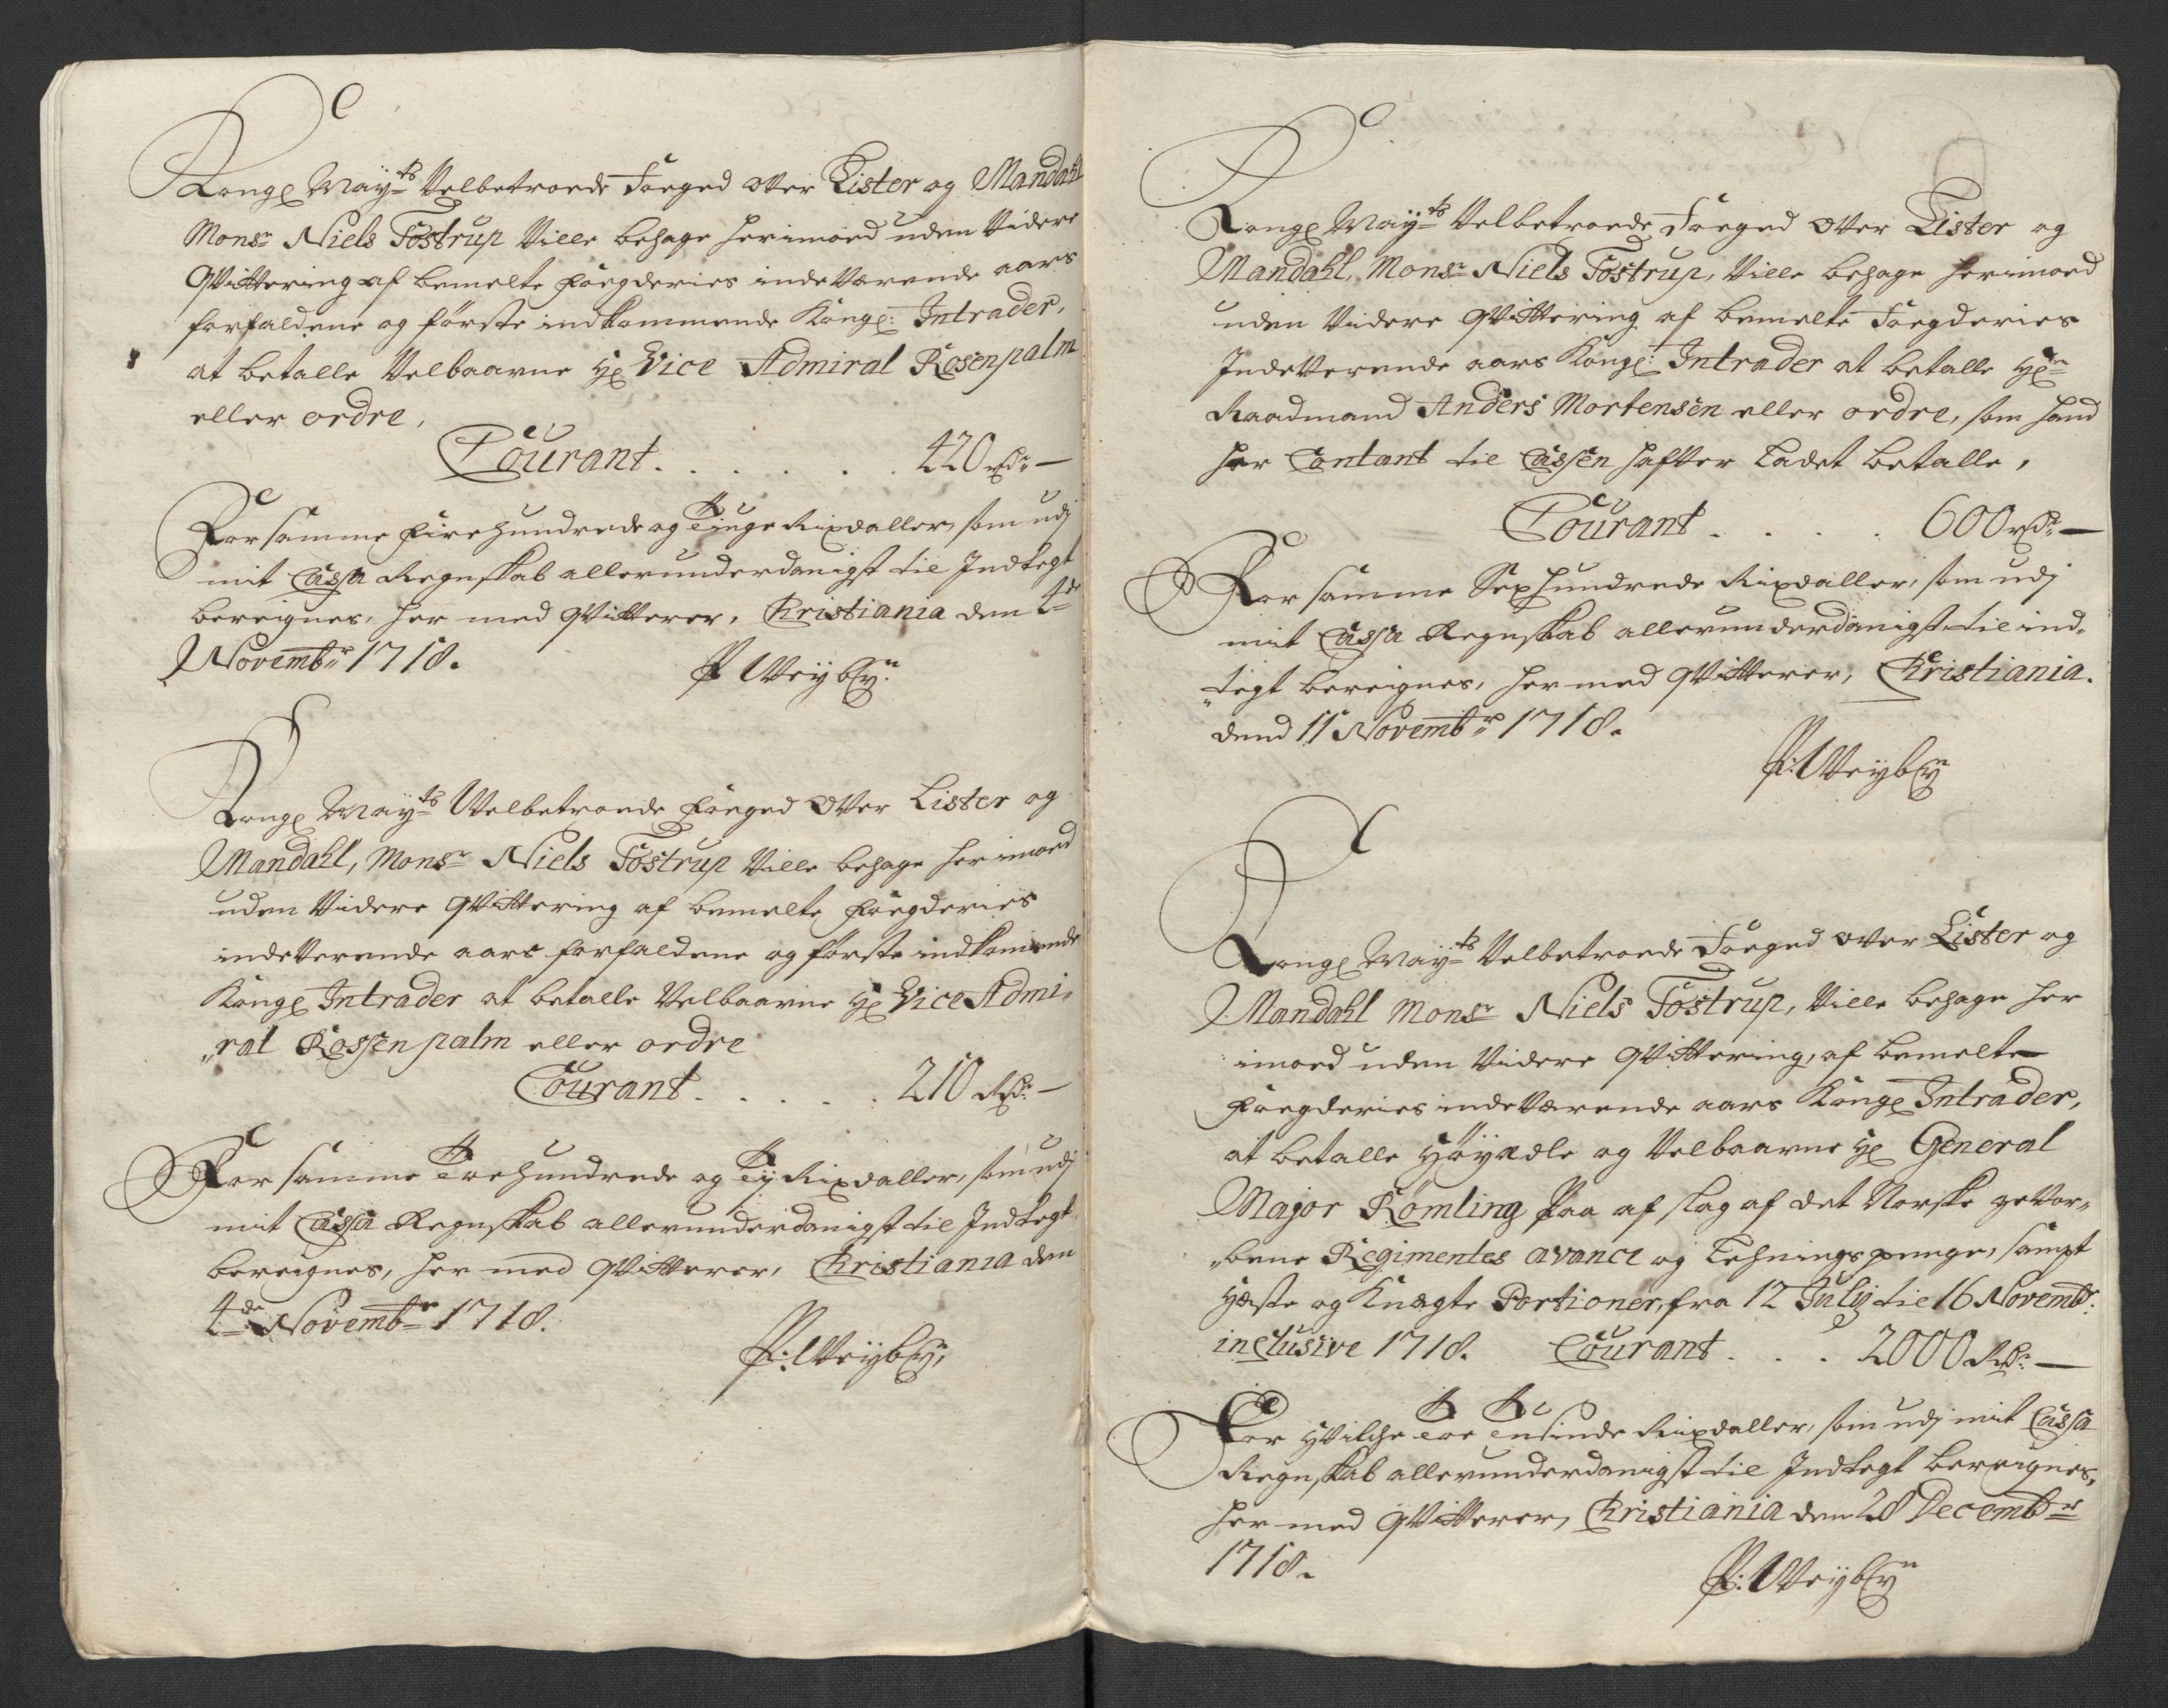 Kongl May:ts Velbetroede Foeged over Lister og Mandahl
Monsr Niels Tostrup Ville behage herimoed uden Videre
Qvittering af bemelte Foegderies indeværende aars
forfaldene og første indkommende Kongl: Intrader,
at betalle Velbaarne Hr Vice Admiral Rosenpalm
eller ordre,
Courant . . . . . . 420 rdr —
For samme Firehundrede og Tiuge Rixdaller, som udj
mit Cassa Regnskab allerunderdanigst til Indtegt
bereignes, her med Qvitterer, Christiania den 4de
Novembr 1718.
P Weybye
Kongl May:ts Velbetroede Foeged over Lister og
Mandahl, Monsr Niels Tostrup Ville behage herimoed
uden Videre Qvittering af bemelte Foegderies
indeverende aars forfaldene og første indkommende
Kongl Intrader at betalle Velbaarne Hr Vice Admi-
„ral Rossenpalm eller ordre
Courant . . . . . 210 Rdr. —
For samme Toehundrede og Tij Rixdaller, som udj
mit Cassa Regnskab allerunderdanigst til Indtegt
bereignes, her med Qvitterer, Christiania den
4de Novembr 1718.
P: Weybye
Kongl May:ts Velbetroede Foeged over Lister og
Mandahl, Monsr Niels Tostrup, Ville behage herimoed
uden Videre Qvittering af bemelte Foegderies
Indeverende aars Kongl: Intrader at betalle Hr
Raadmand Anders Mortensen eller ordre, som hand
her Contant til Cassen hafver Ladet betalle,
Courant . . . . 600 rdr. —
For samme Sexhundrede Rixdaller, som udj
mit Cassa Regnskab allerunderdanigst til ind-
„tegt bereignes, her med Qvitterer, Christiania.
dend 11 Novembr 1718.
P: Weybye
Kongl May:ts Velbetroede Foeged over Lister og
Mandahl Monsr Niels Tostrup, Ville behage her
imoed uden Videre Qvittering, af bemelte
Foegderies indeværende aars Kongl Intrader,
at betalle Høyædle og Velbaarne Hr General
Major Rømling paa afslag af det Norske gevor-
„bene Regimentes avance og Lehnings penge, sampt
Heste og Knegte Portioner, fra 12 Julij til 16 Novembr.
inclusive 1718. Courant . . . 2000 Rdr. —
For Hvilche Toe Tusinde Rixdaller, som udj mit Cassa
Regnskab allerunderdanigst til Indtegt bereignes,
her med Qvitterer, Christiania den 28 Decembr
1718.
P: Weybye